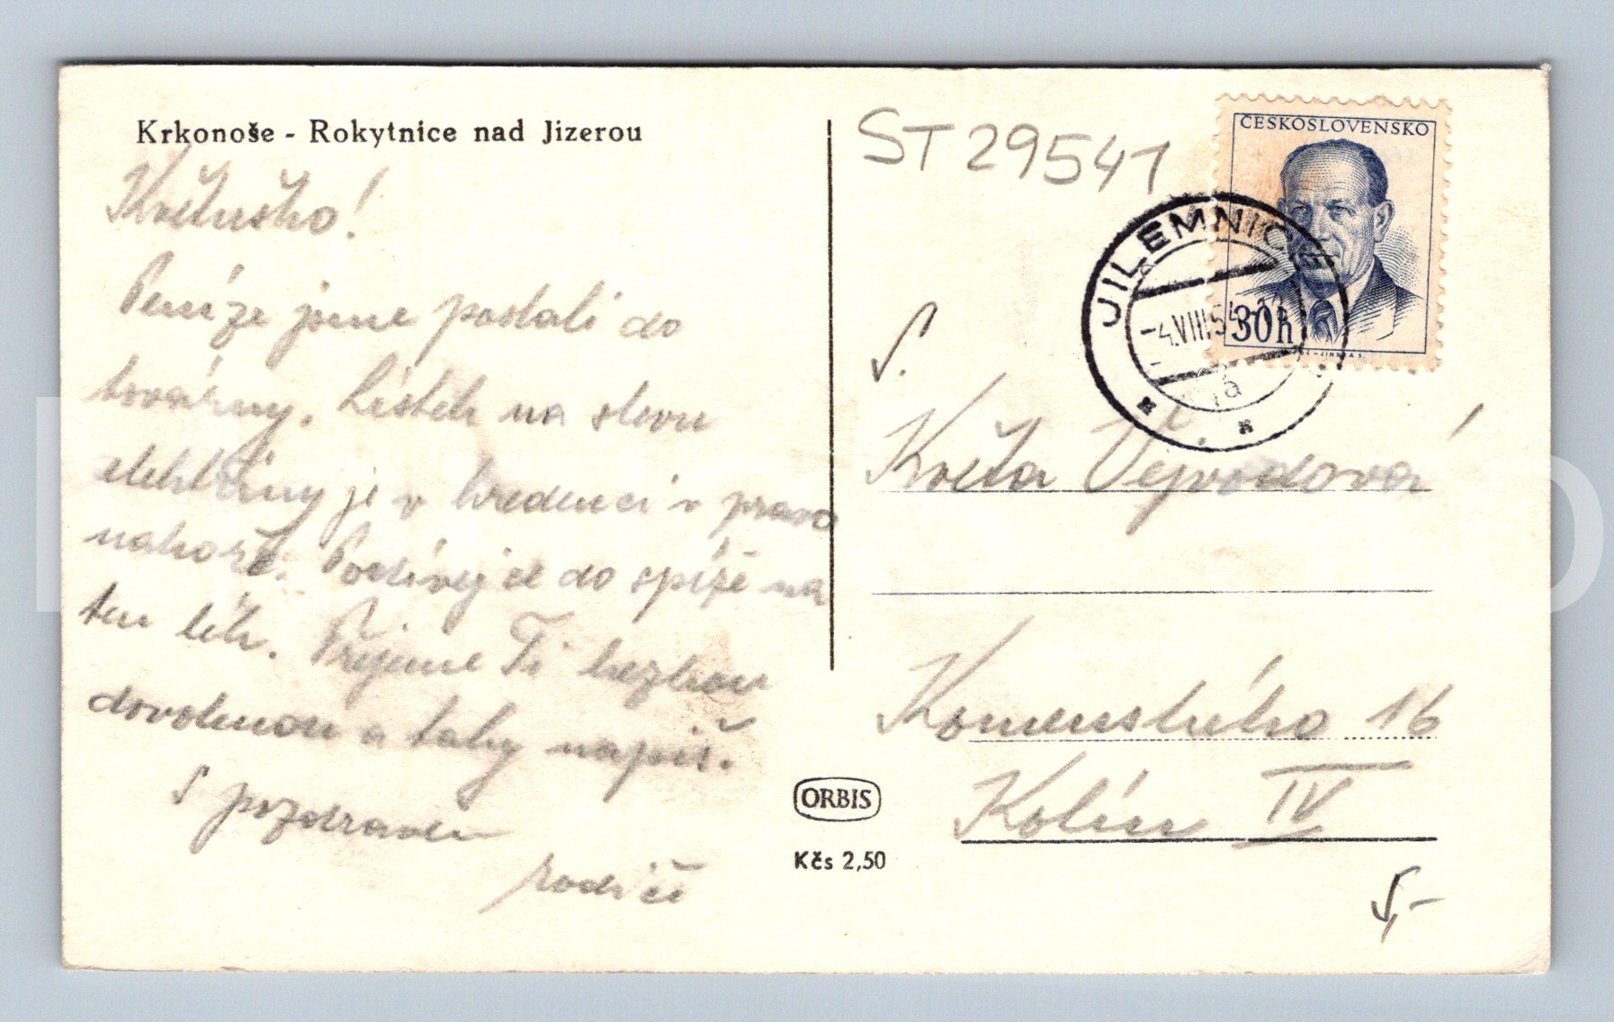 Krkonoše - Rokytnice nad Jizerou
Květuško!
Peníze jsme poslali do
továrny. Lístek na slevu
elektřiny je v kredenci v pravo
nahoře. Podívej se do spíže na
ten lék. Přejeme Ti hezkou
dovolenou a taky napiš.
S pozdravem
rodiče
ST 29541
ČESKOSLOVENSKO
30h
JILEMNICE
-4.VIII.54
1a
S.
Květa Vejvodová
Komenského 16
Kolín IV
ORBIS
Kčs 2,50
5,-